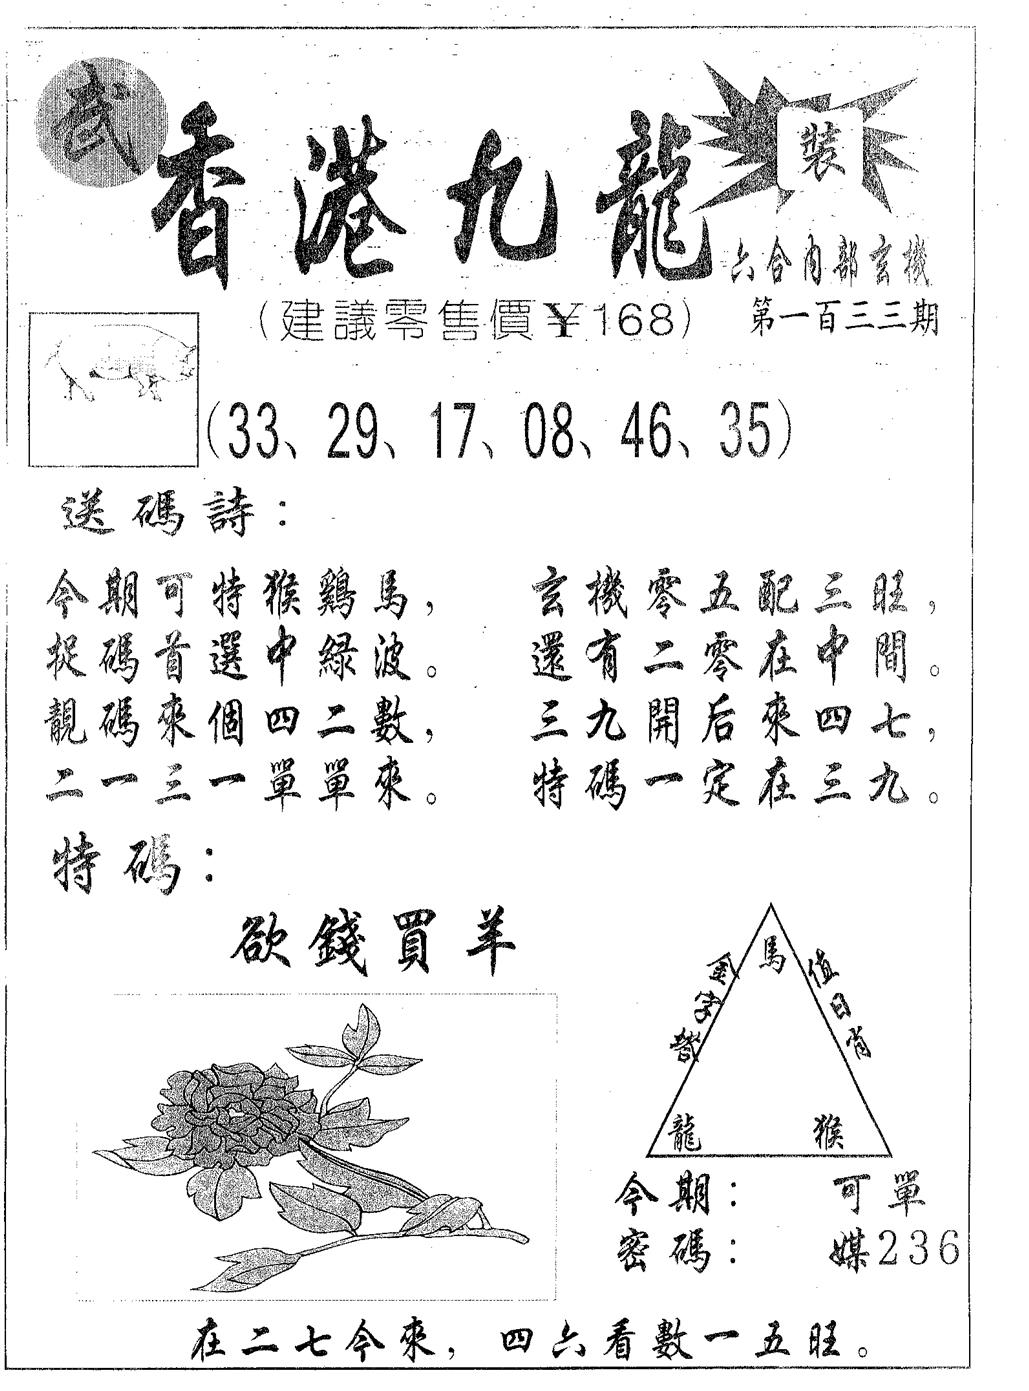 武
香港九龍
裝
六合内部玄機
（建議零售價￥168）
第一百三三期
（33、29、17、08、46、35）
送碼詩：
今期可特猴鷄馬，
捉碼首選中緑波。
靚碼來個四二數，
二一三一單單來。
玄機零五配三旺，
還有二零在中間。
三九開后來四七，
特碼一定在三九。
特碼：
欲錢買羊
金字塔
值日肖
馬
龍
猴
今期： 可單
密碼： 媒236
在二七今來，四六看數一五旺。